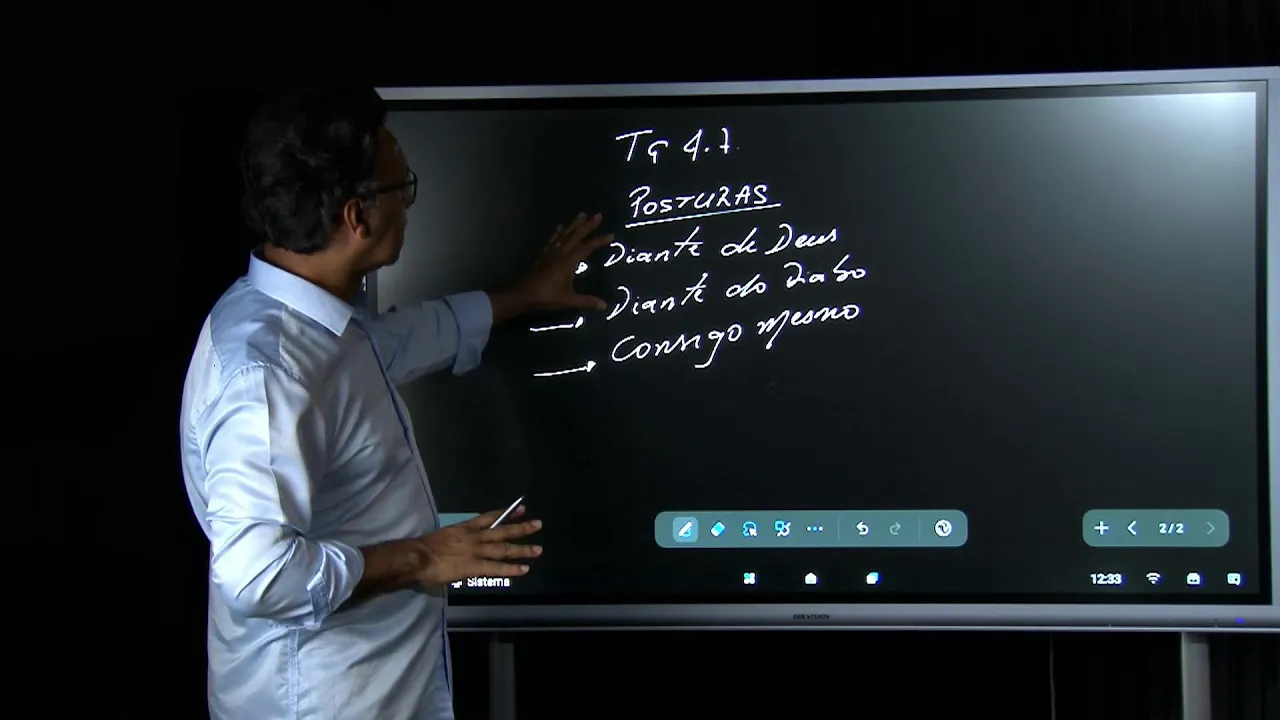 Tg 4.7
POSTURAS
Diante de Deus
Diante do Diabo
Consigo mesmo
2/2
Sistema
12:33
HIKVISION